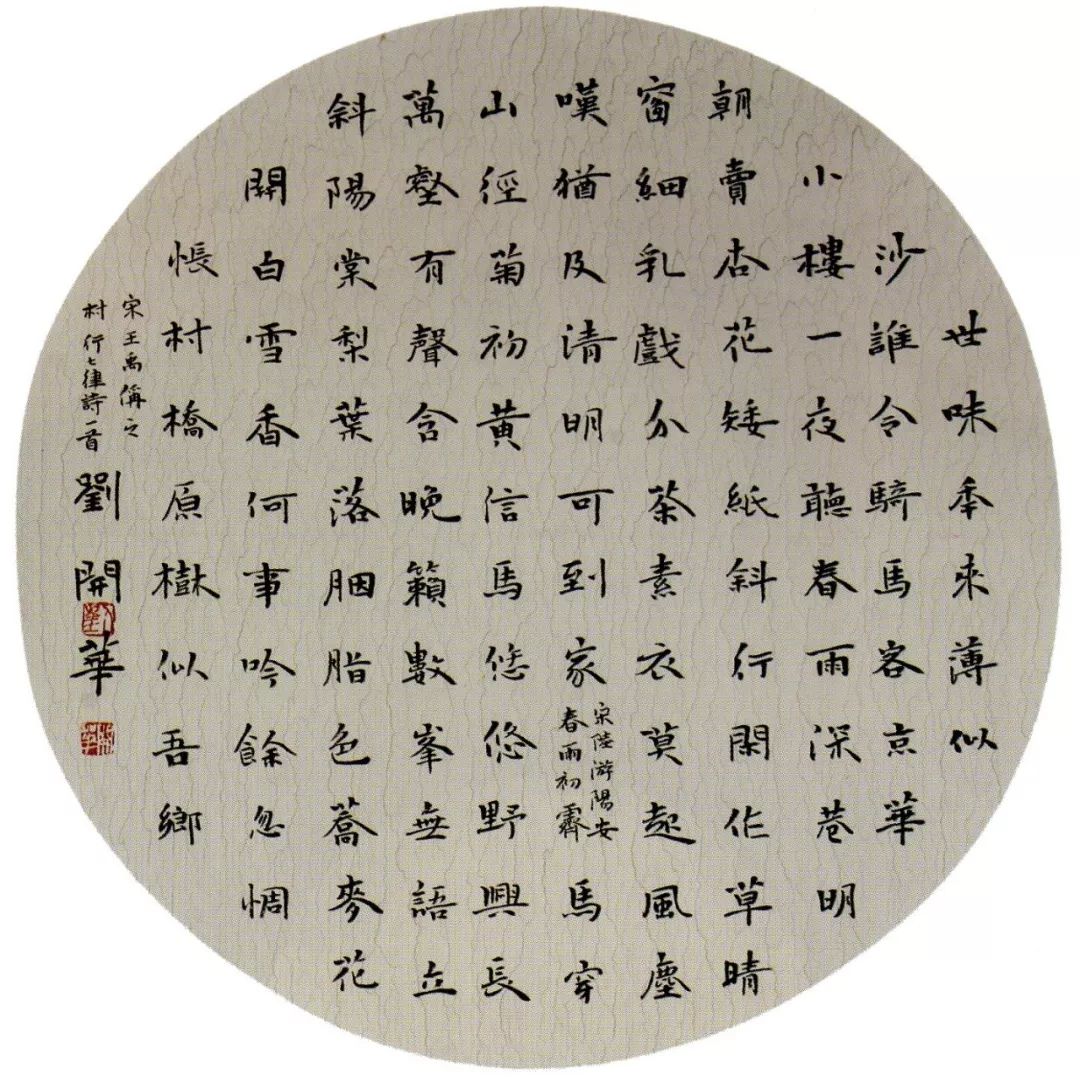 世味秊来薄似
沙誰令騎馬客京華
小樓一夜聽春雨深巷明
朝賣杏花矮紙斜行閑作草晴
窗細乳戲分茶素衣莫起風塵
嘆猶及清明可到家
宋陸游陽安
春雨初霽
馬穿
山徑菊初黃信馬悠悠野興長
萬壑有聲含晚籟數峯無語立
斜陽棠梨葉落胭脂色蕎麥花
開白雪香何事吟餘忽惆
悵村橋原樹似吾鄉
宋王禹偁之
村行七律詩一首
劉開華